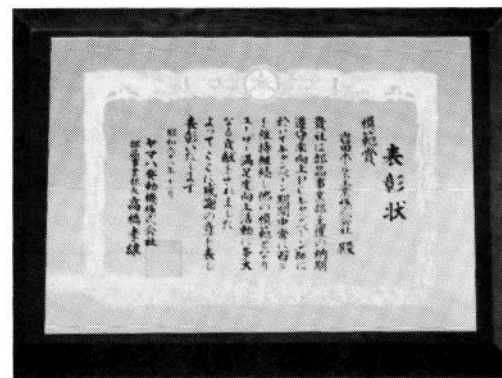 表彰状
模範賞
岩田木工業株式会社 殿
貴社は部品事業部主催の納期
遵守率向上IDキャンペーン期に
於いてキャンペーン期間中常に
を維持継続し他の模範となり
ユーザー満足度向上活動に多大
なる貢献をされました
よってここに感謝の意を表し
表彰いたします
昭和六十
ヤマハ発動機株式会社
部品事業部長 高橋孝雄